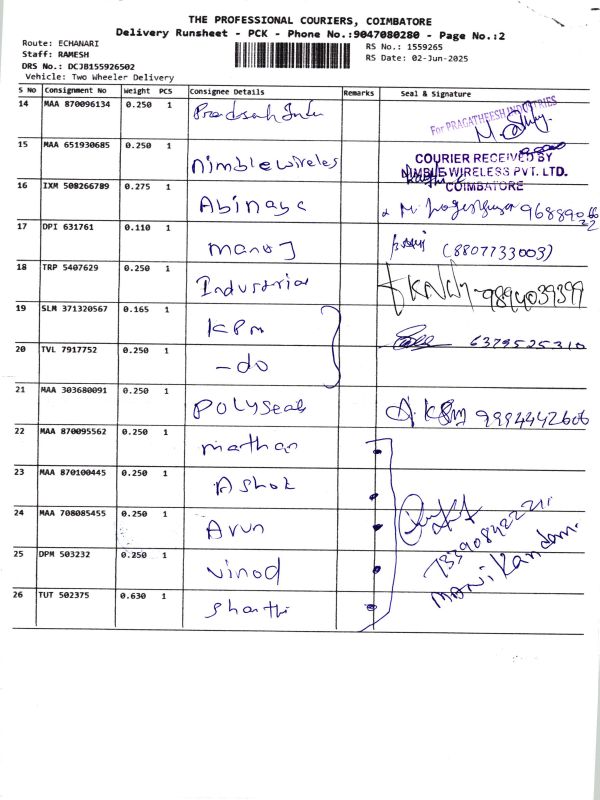 THE PROFESSIONAL COURIERS, COIMBATORE
Delivery Runsheet - PCK - Phone No.:9047080280 - Page No.:2
Route: ECHANARI
Staff: RAMESH
DRS No.: DCJB155926502
Vehicle: Two Wheeler Delivery
RS No.: 1559265
RS Date: 02-Jun-2025
S No Consignment No Weight PCS Consignee Details Remarks Seal & Signature
14 MAA 870096134 0.250 1
For PRAGATHEESH INDUSTRIES
15 MAA 651930685 0.250 1 nimblewireles
COURIER RECEIVED BY
NIMBLE WIRELESS PVT. LTD.
COIMBATORE
16 IXM 508266789 0.275 1 Abinaya
17 DPI 631761 0.110 1 manoj (8807733003)
18 TRP 5407629 0.250 1 Industrial 9894039399
19 SLM 371320567 0.165 1 KPM
6379525310
20 TVL 7917752 0.250 1 -do
21 MAA 303680091 0.250 1 polyseals A. KPM 9994442606
22 MAA 870095562 0.250 1 mathan
23 MAA 870100445 0.250 1 Ashok
24 MAA 708085455 0.250 1 Arun
7339084222
25 DPM 503232 0.250 1 vinod
Manikandan.
26 TUT 502375 0.630 1 Shanthi